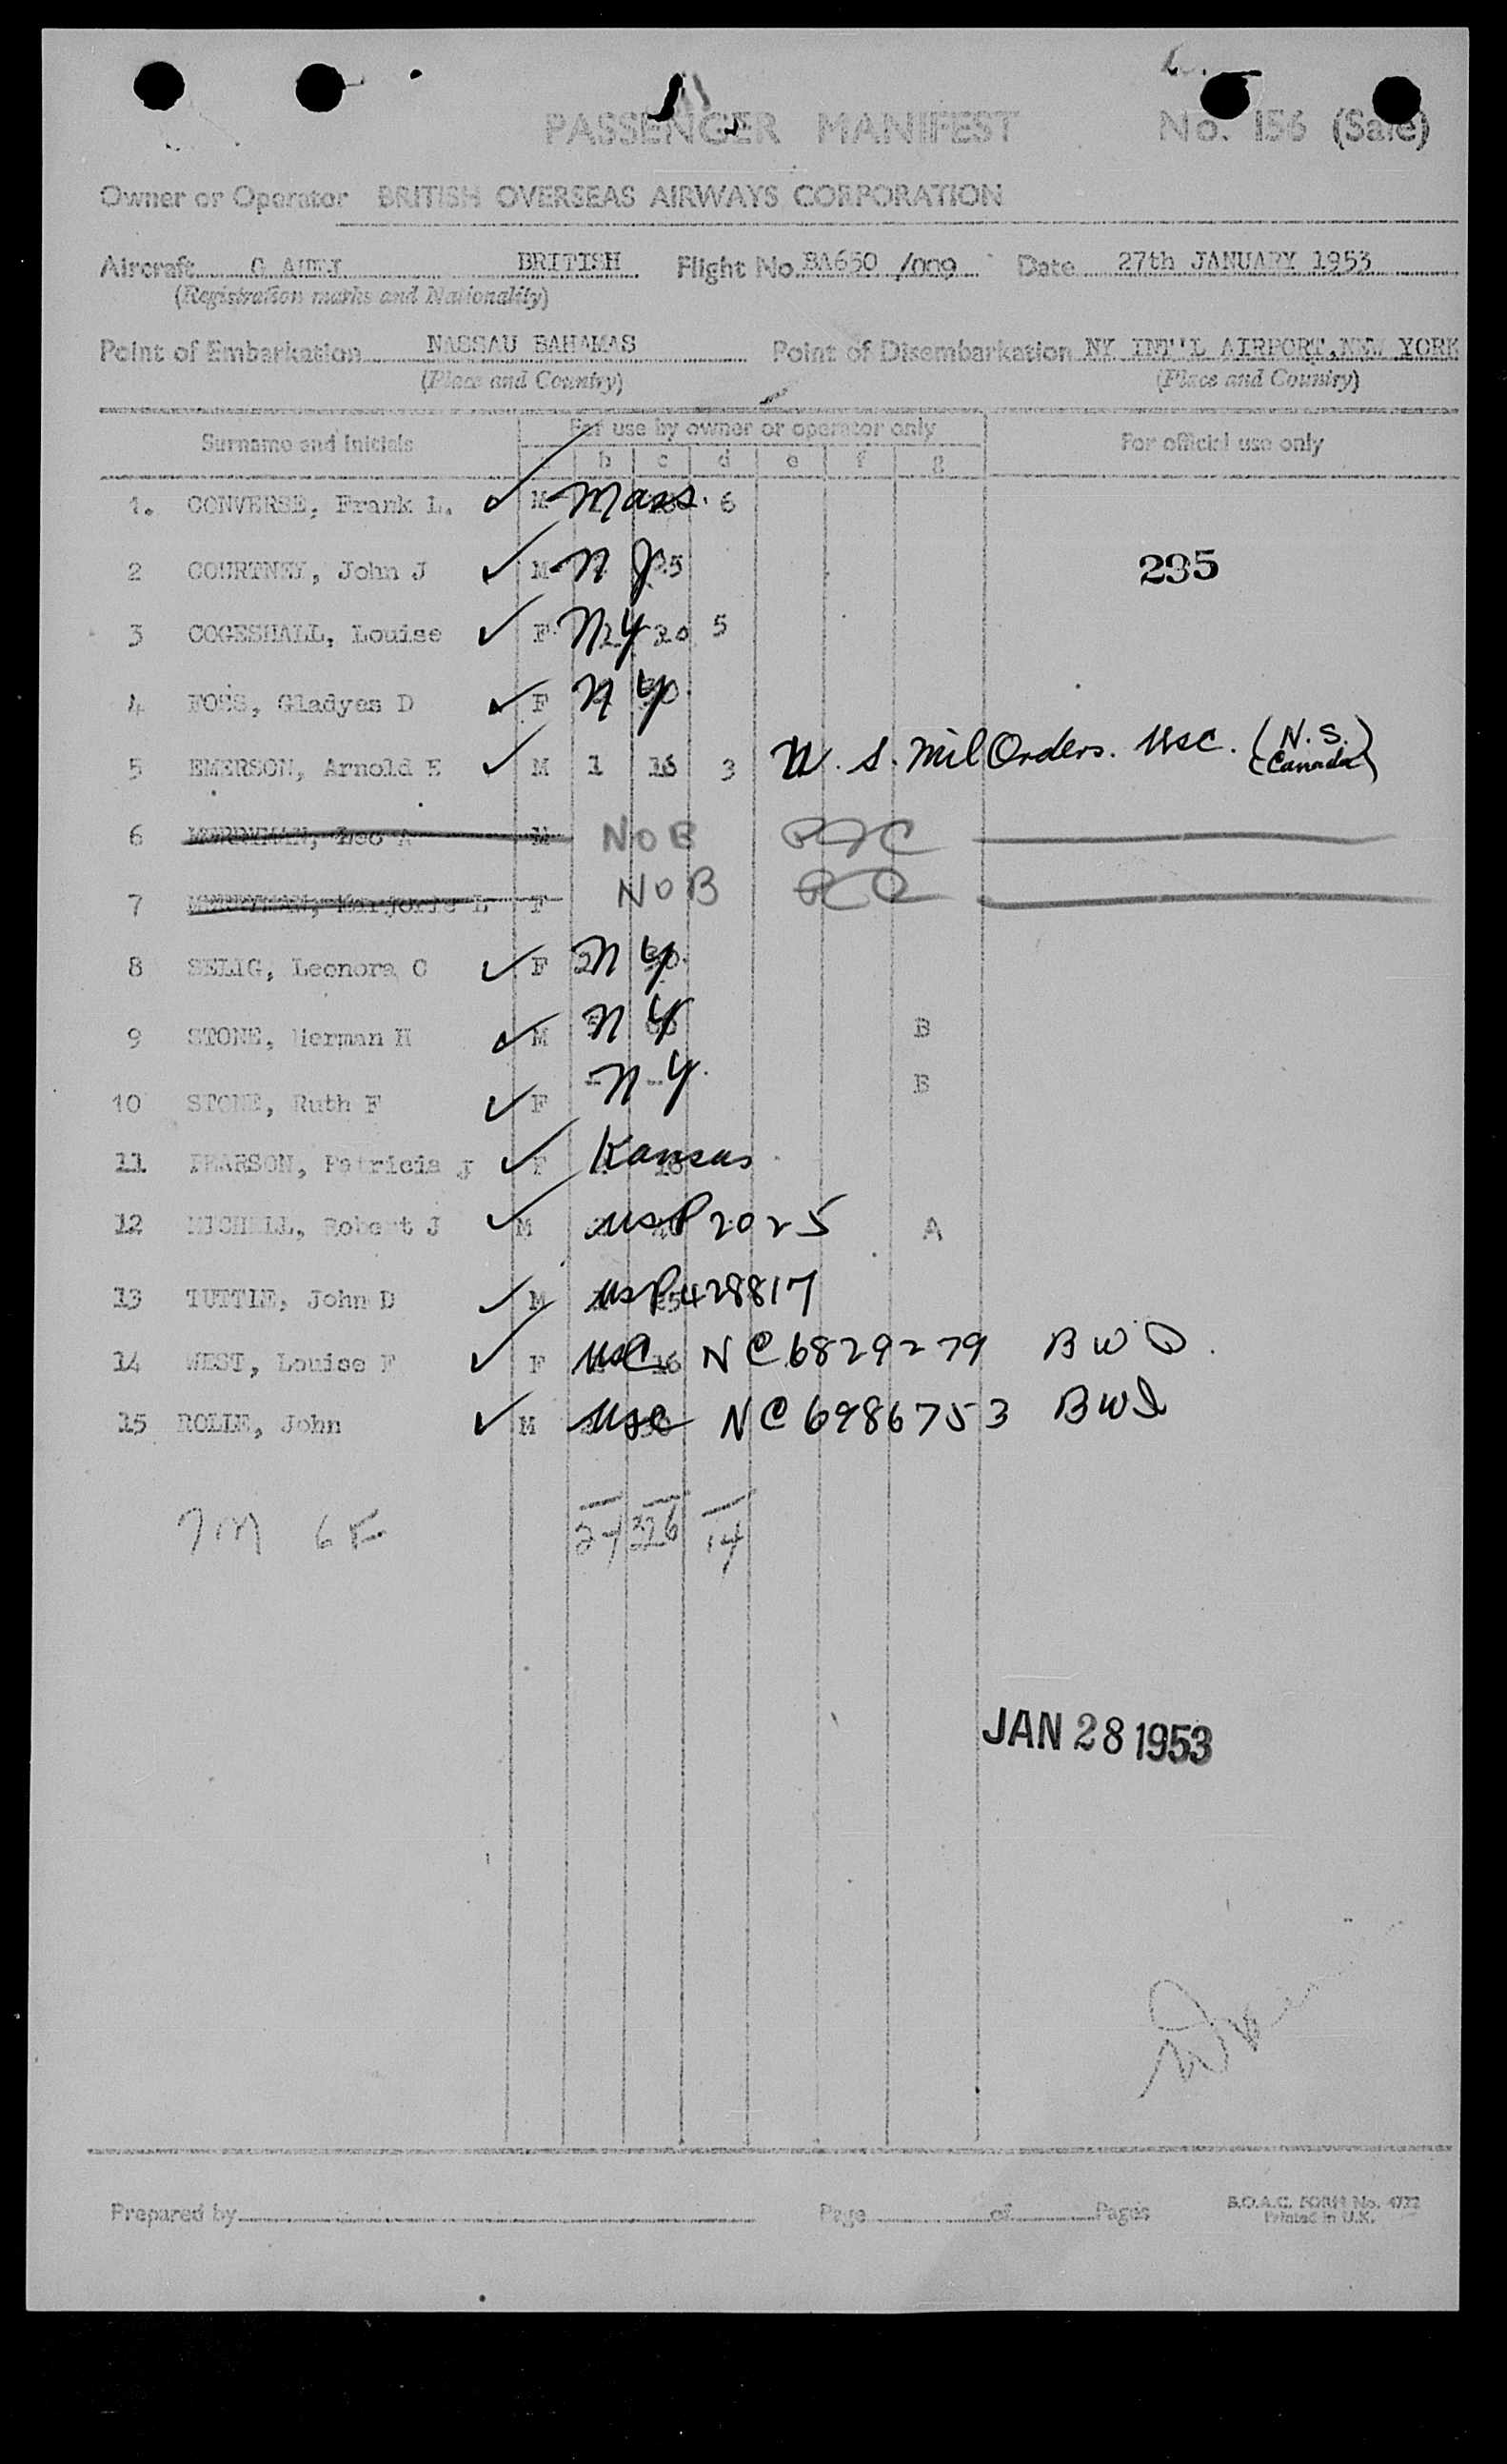 PASSENGER MANIFEST No. 156 (Sale)
Owner or Operator BRITISH OVERSEAS AIRWAYS CORPORATION
Aircraft BRITISH Flight No. BA650 /009 Date 27th JANUARY 1953
(Registration marks and Nationality)
Point of Embarkation NASSAU BAHAMAS Point of Disembarkation NY INT'L AIRPORT, NEW YORK
(Place and Country) (Place and Country)
For use by owner or operator only
Surname and Initials For official use only
b c d e f g
1. CONVERSE, Frank L. M Mass. 6
2 COURTNEY, John J M N J 25
235
3 COGESHALL, Louise F N Y 20 5
4 FOSS, Gladyes D F N Y
5 EMERSON, Arnold E M 1 16 3 U. S. Mil Orders. USC. (N.S.)
(Canada)
6 MERRYMAN, Leo A M NOB
7 MERRYMAN, Marjorie L F NOB
8 SELIG, Leonora C F N Y.
9 STONE, Herman H M N Y B
10 STONE, Ruth F F N Y. B
11 PEARSON, Patricia J F Kansas
12 MICHELL, Robert J M USP 2025 A
13 TUTTLE, John D M USP 428817
14 WEST, Louise F F USC 16 NC 6829279 BWI
15 ROLLE, John M USC NC 6986753 BWI
7M 6F 326 14
JAN 28 1953
Prepared by Page of Pages B.O.A.C. FORM No. 4722
Printed in U.K.